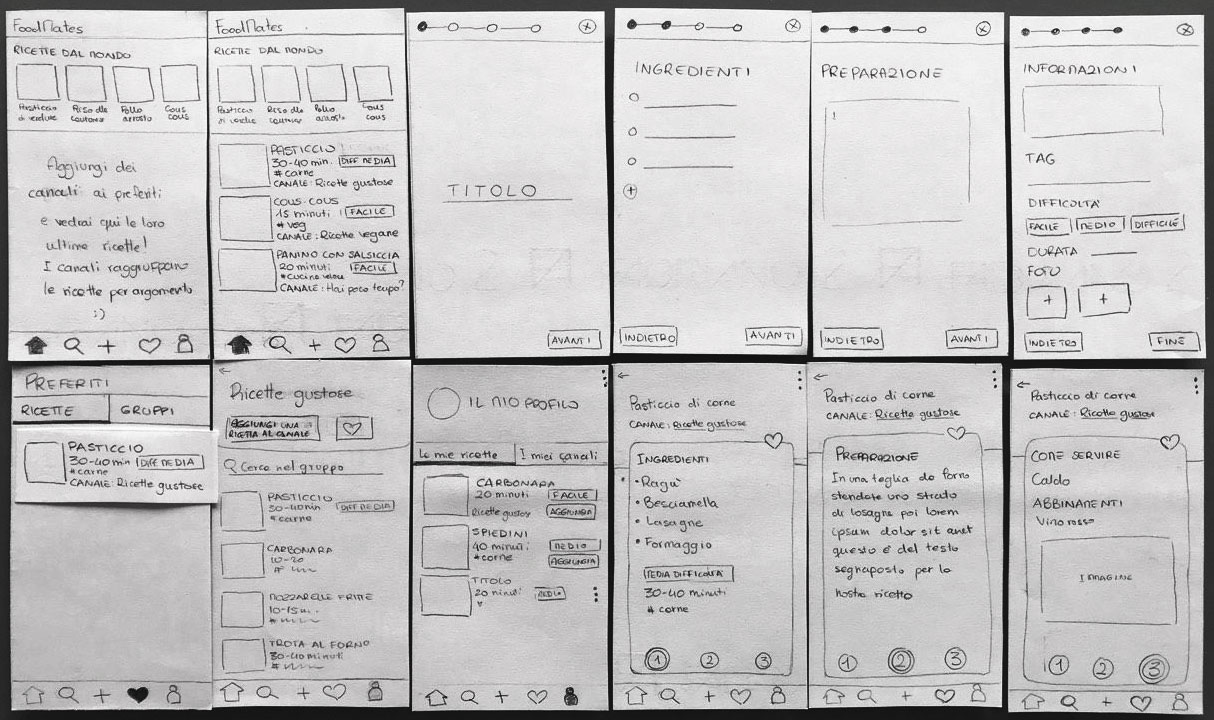 FoodMates
RICETTE DAL MONDO
Pasticcio di verdure
Riso alla
Pollo arrosto
Cous cous
Aggiungi dei
canali ai preferiti
e vedrai qui le loro
ultime ricette!
I canali raggruppano
le ricette per argomento
:)
FoodMates
RICETTE DAL MONDO
Pasticcio di verdure
Riso alla
Pollo arrosto
Cous cous
PASTICCIO
30-40 min. DIFF MEDIA
# carne
CANALE: Ricette gustose
COUS COUS
15 minuti FACILE
# veg
CANALE: Ricette vegane
PANINO CON SALSICCIA
20 minuti FACILE
# cucina veloce
CANALE: Hai poco tempo?
TITOLO
AVANTI
INGREDIENTI
+
INDIETRO
AVANTI
PREPARAZIONE
INDIETRO
AVANTI
INFORMAZIONI
TAG
DIFFICOLTA'
FACILE MEDIO DIFFICILE
DURATA
FOTO
+ +
INDIETRO
FINE
PREFERITI
RICETTE GRUPPI
PASTICCIO
30-40 min DIFF MEDIA
# carne
CANALE: Ricette gustose
←
Ricette gustose
AGGIUNGI UNA
RICETTA AL CANALE
Cerca nel gruppo
PASTICCIO
30-40min DIFF MEDIA
# carne
CARBONARA
10-20
#
MOZZARELLE FRITTE
10-15
#
TROTA AL FORNO
30-40 minuti
#
IL MIO PROFILO
Le mie ricette I miei canali
CARBONARA
20 minuti FACILE
Ricette gustose AGGIUNGI
SPIEDINI
40 minuti MEDIO
# carne AGGIUNGI
TITOLO
20 minuti MEDIO
←
Pasticcio di carne
CANALE: Ricette gustose
INGREDIENTI
• Ragù
• Besciamella
• Lasagne
• Formaggio
MEDIA DIFFICOLTA'
30-40 minuti
# carne
1 2 3
←
Pasticcio di carne
CANALE: Ricette gustose
PREPARAZIONE
In una teglia da forno
stendete uno strato
di lasagne poi lorem
ipsum dolor sit amet
questo è del testo
segnaposto per la
nostra ricetta
1 2 3
←
Pasticcio di carne
CANALE: Ricette gustose
COME SERVIRE
Caldo
ABBINAMENTI
Vino rosso
IMMAGINE
1 2 3